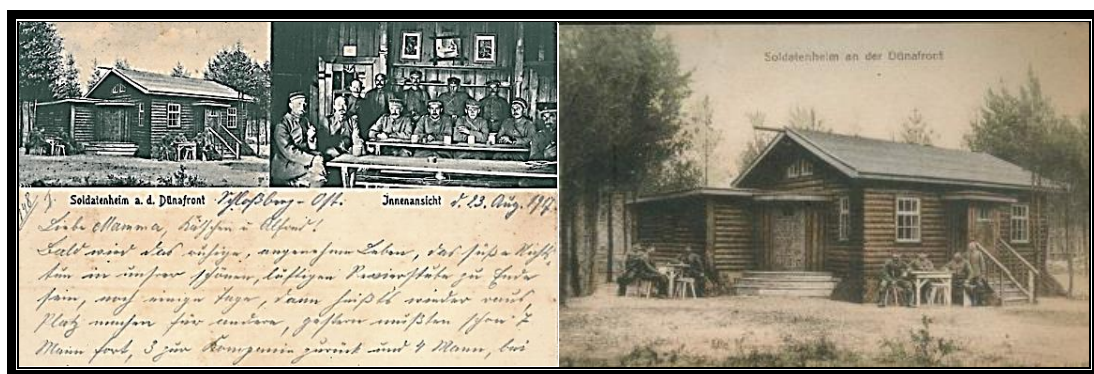 Soldatenheim an der Dünafront
Soldatenheim a. d. Dünafront Schloßberg-Ost. Innenansicht d. 23. Aug. 1917
Liebe Mamma, Käschen u. Alfred!
Bald wird das ruhige, angenehme Leben, das süße Nichts
tun in unsrer schönen, luftigen Revierstube zu Ende
sein, noch einige Tage, dann heißts wieder raus,
Platz machen für andere, gestern mußten schon 7
Mann fort, 3 zur Kompanie zurück und 4 Mann, bei